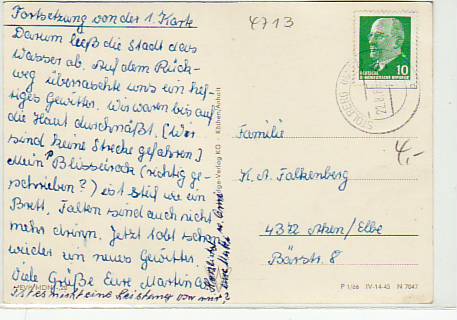 Fortsetzung von der 1. Karte
Darum ließ die Stadt das
Wasser ab. Auf dem Rück-
weg überraschte uns ein hef-
tiges Gewitter. Wir waren bis auf
die Haut durchnäßt. (Wir
sind keine Strecke gefahren.)
Mein Plisseerock (richtig ge-
schrieben?) ist steif wie ein
Brett. Falten sind auch nicht
mehr drinn. Jetzt tobt schon
wieder ein neues Gewitter.
Viele Grüße Eure Martina
Ist es nicht eine Leistung von mir?
4713
DEUTSCHE
DEMOKRATISCHE REPUBLIK
10
STOLBERG
22.8.
Familie
4,-
K. A. Falkenberg
4372 Aken/Elbe
Bärstr. 8
Köthen/Anhalt
Verlag KG
P 1/66 IV-14-45 N 7047